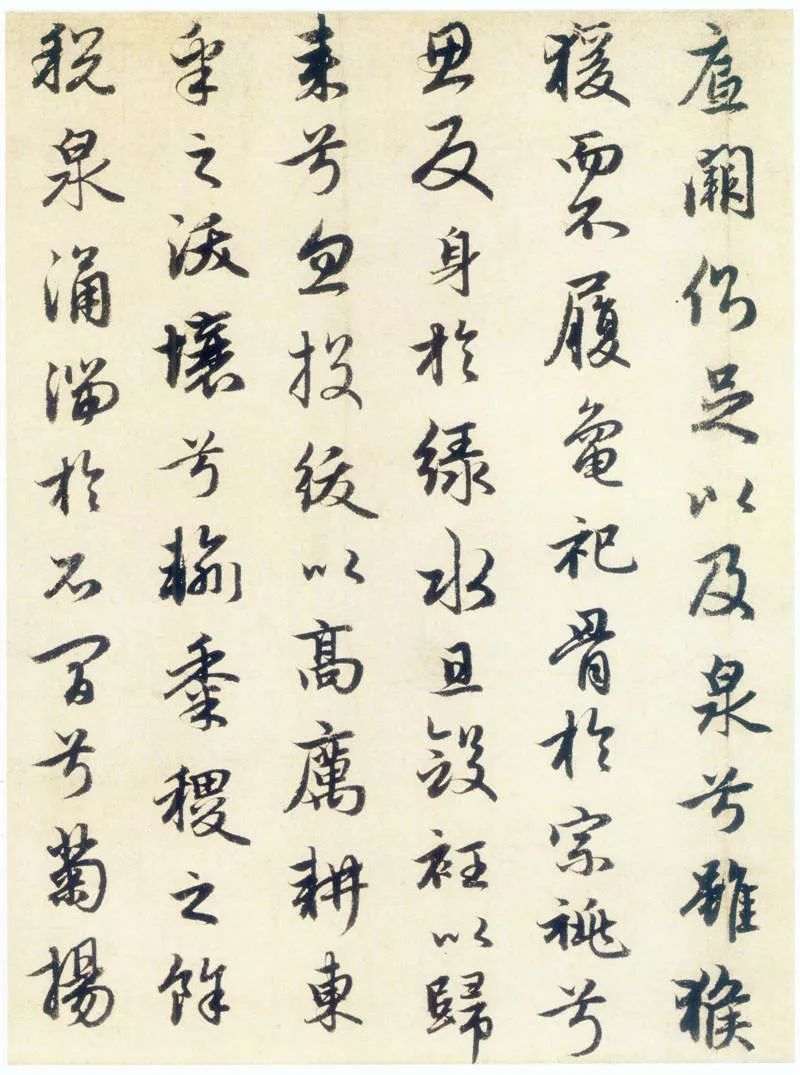 底闕側足以及泉兮雖猴
猨而不履龜祀骨於宗祧兮
思反身於綠水且斂衽以歸
來兮忽投紱以高厲耕東
皋之沃壤兮輸黍稷之餘
稅泉涌湍於石間兮菊揚